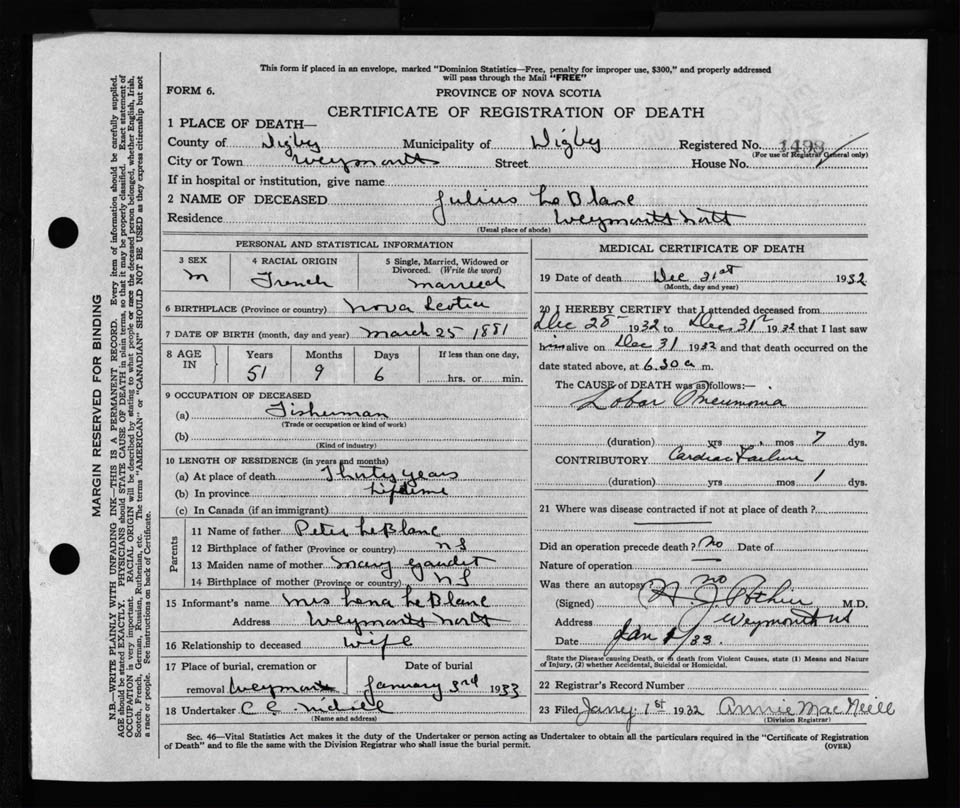 This form if placed in an envelope, marked "Dominion Statistics—Free, penalty for improper use, $300," and properly addressed
will pass through the Mail "FREE"
FORM 6.
PROVINCE OF NOVA SCOTIA
CERTIFICATE OF REGISTRATION OF DEATH
1 PLACE OF DEATH—
County of Digby Municipality of Digby Registered No. 1498
(For use of Registrar General only)
City or Town Weymouth Street House No.
If in hospital or institution, give name
2 NAME OF DECEASED Julius Le Blanc
Residence Weymouth North
(Usual place of abode)
PERSONAL AND STATISTICAL INFORMATION
3 SEX 4 RACIAL ORIGIN 5 Single, Married, Widowed or
Divorced. (Write the word)
M French married
6 BIRTHPLACE (Province or country) Nova Scotia
7 DATE OF BIRTH (month, day and year) March 25 1881
8 AGE IN Years Months Days If less than one day,
51 9 6 hrs. or min.
9 OCCUPATION OF DECEASED
(a) Fisherman
(Trade or occupation or kind of work)
(b)
(Kind of industry)
10 LENGTH OF RESIDENCE (in years and months)
(a) At place of death Thirty years
(b) In province Lifetime
(c) In Canada (if an immigrant)
Parents
11 Name of father Peter LeBlanc
12 Birthplace of father (Province or country) NS
13 Maiden name of mother Mary Gaudet
14 Birthplace of mother (Province or country) NS
15 Informant's name Mrs Lena LeBlanc
Address Weymouth North
16 Relationship to deceased Wife
17 Place of burial, cremation or Date of burial
removal Weymouth January 3rd 1933
18 Undertaker C C
(Name and address)
MEDICAL CERTIFICATE OF DEATH
19 Date of death Dec 31st 1932
(Month, day and year)
20 I HEREBY CERTIFY that I attended deceased from
Dec 28 1932 to Dec 31 1932 that I last saw
him alive on Dec 31 1932 and that death occurred on the
date stated above, at 6.30 a m.
The CAUSE of DEATH was as follows:—
Lobar Pneumonia
(duration) yrs mos 7 dys.
CONTRIBUTORY Cardiac Failure
(duration) yrs mos 1 dys.
21 Where was disease contracted if not at place of death?
Did an operation precede death? No Date of
Nature of operation
Was there an autopsy? no
(Signed) H J Pothier M.D.
Address Weymouth NS
Date Jan /33.
State the Disease causing Death, or in death from Violent Causes, state (1) Means and Nature
of Injury, (2) whether Accidental, Suicidal or Homicidal.
22 Registrar's Record Number
23 Filed Jany 1st 1932 Annie MacNeill
(Division Registrar)
Sec. 46—Vital Statistics Act makes it the duty of the Undertaker or person acting as Undertaker to obtain all the particulars required in the "Certificate of Registration
of Death" and to file the same with the Division Registrar who shall issue the burial permit. (OVER)
MARGIN RESERVED FOR BINDING
N.B.—WRITE PLAINLY WITH UNFADING INK—THIS IS A PERMANENT RECORD. Every item of information should be carefully supplied.
AGE should be stated EXACTLY. PHYSICIANS should STATE CAUSE OF DEATH in plain terms, so that it may be properly classified. Exact statement of
OCCUPATION is very important. RACIAL ORIGIN will be described by stating to what people or race the deceased person belonged, whether English, Irish,
Scotch, French, German, Russian, Ruthenian, etc. The terms "AMERICAN" or "CANADIAN" SHOULD NOT BE USED as they express citizenship but not
a race or people. See instructions on back of Certificate.